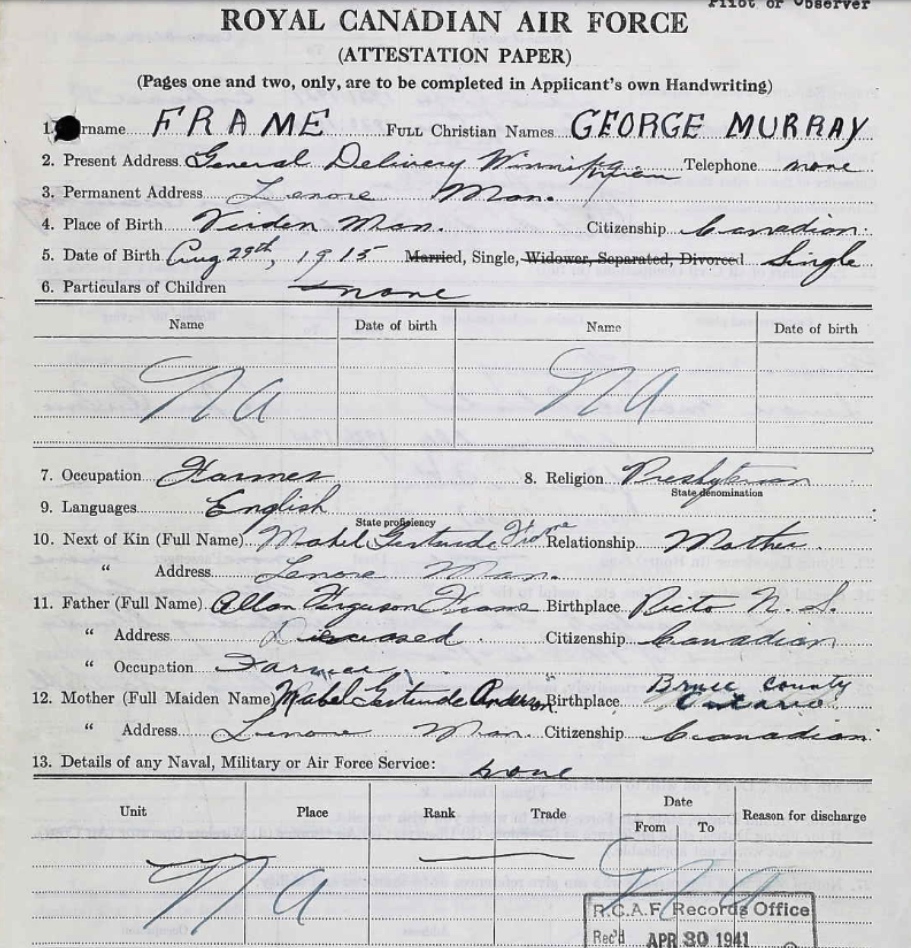 Pilot or Observer
ROYAL CANADIAN AIR FORCE
(ATTESTATION PAPER)
(Pages one and two, only, are to be completed in Applicant's own Handwriting)
1. urname FRAME FULL Christian Names GEORGE MURRAY
2. Present Address General Delivery Winnipeg Telephone none
3. Permanent Address Lenore Man.
4. Place of Birth Virden Man. Citizenship Canadian.
5. Date of Birth Aug 29th, 1915 Married, Single, Widower, Separated, Divorced Single
6. Particulars of Children none
Name Date of birth Name Date of birth
N A N A
7. Occupation Farmer 8. Religion Presbyterian
State denomination
9. Languages English
State proficiency
10. Next of Kin (Full Name) Mabel Gertrude Frame Relationship Mother.
" Address Lenore Man.
11. Father (Full Name) Allan Ferguson Frame Birthplace Picto N. S.
" Address Deceased. Citizenship Canadian
" Occupation Farmer
12. Mother (Full Maiden Name) Mabel Gertrude Anderson Birthplace Bruce County Ontario.
" Address Lenore Man. Citizenship Canadian
13. Details of any Naval, Military or Air Force Service: none
Unit Place Rank Trade Date Reason for discharge
From To
N A N A
R.C.A.F. Records Office
Rec'd APR 30 1941